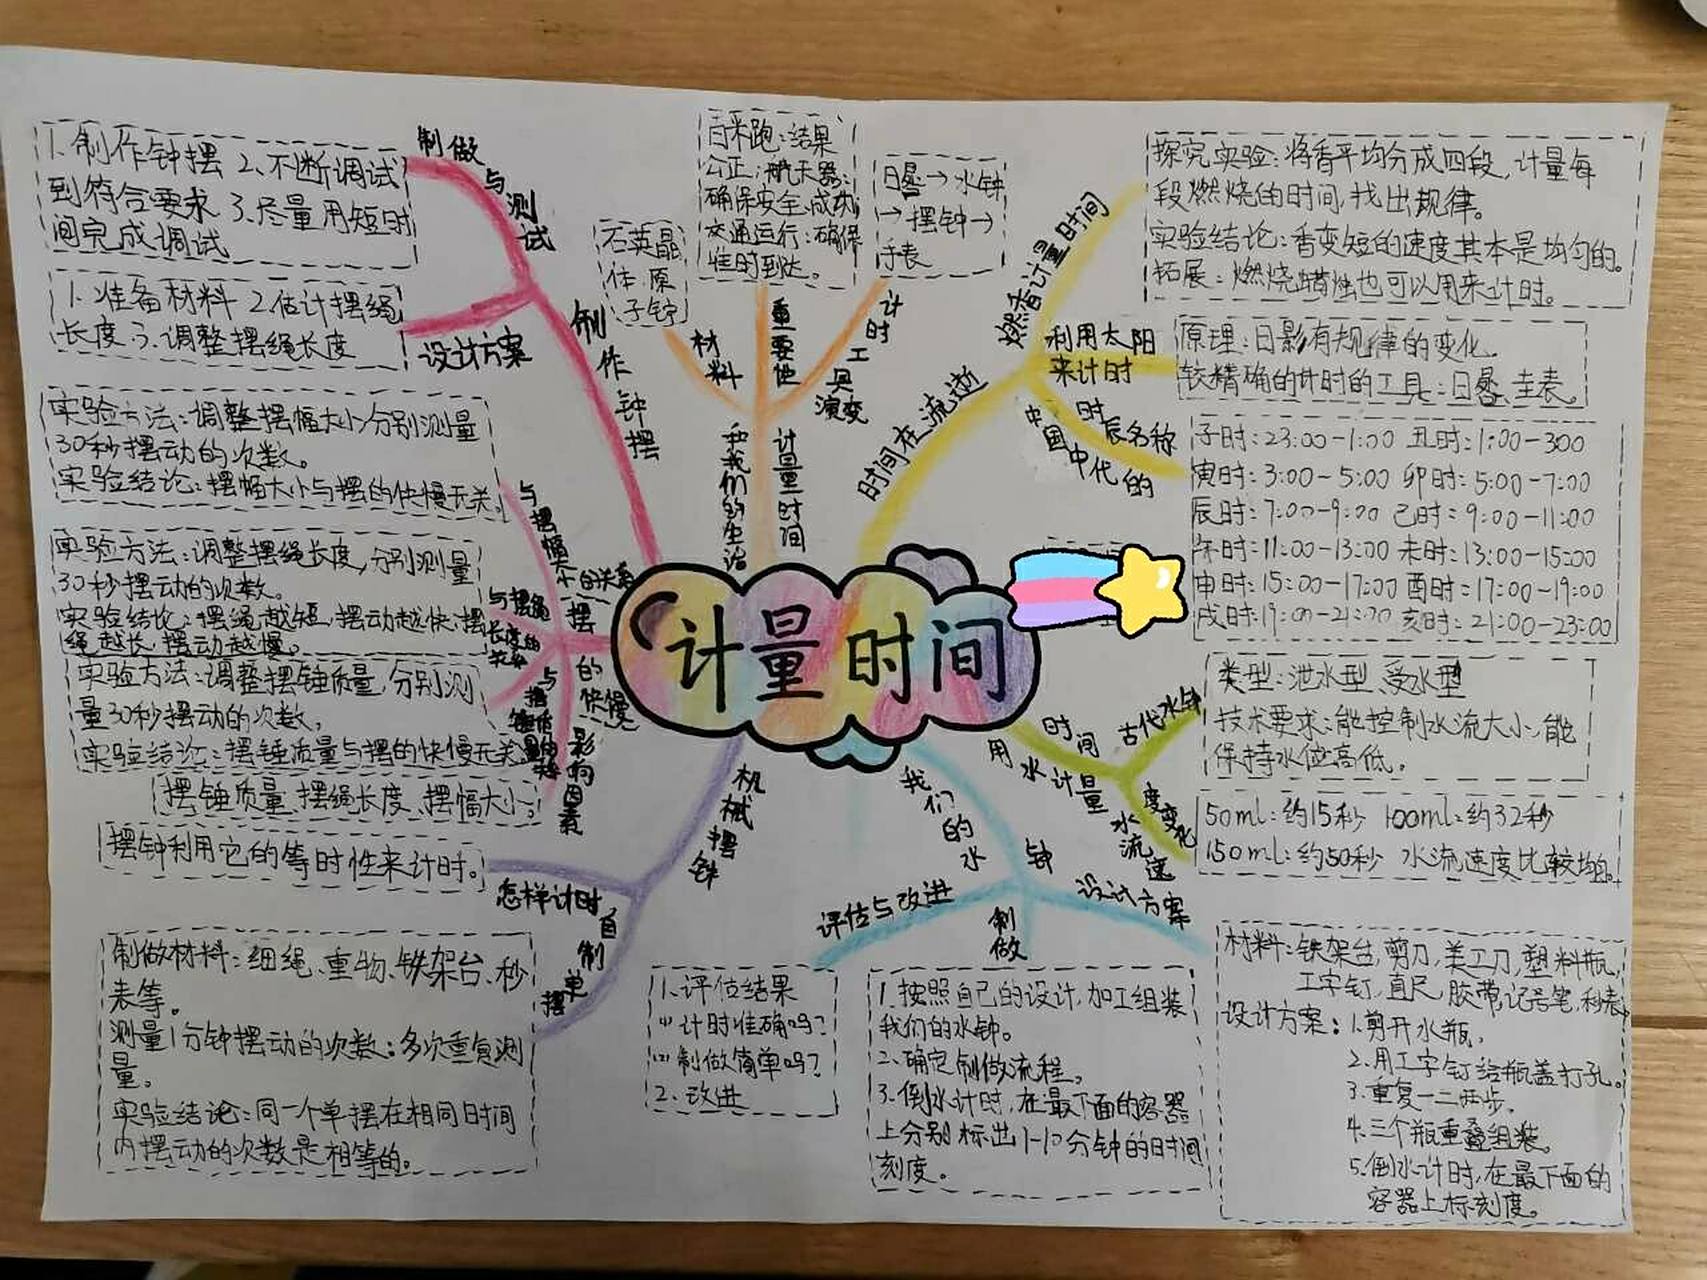 计量时间
时间在流逝
燃香计量时间
探究实验:将香平均分成四段,计量每
段燃烧的时间,找出规律。
实验结论:香变短的速度其本是均匀的。
拓展:燃烧蜡烛也可以用来计时。
利用太阳
来计时
原理:日影有规律的变化.
较精确的计时的工具:日晷、圭表。
时辰名称
中国中代的
子时:23:00-1:00 丑时:1:00-300
寅时:3:00-5:00 卯时:5:00-7:00
辰时:7:00-9:00 己时:9:00-11:00
午时:11:00-13:00 未时:13:00-15:00
申时:15:00-17:00 酉时:17:00-19:00
戌时:19:00-21:00 亥时:21:00-23:00
用水计量
时间
古代水钟
类型:泄水型、受水型
技术要求:能控制水流大小,能
保持水位高低.
水流速
度变化
50ml:约15秒 100ml:约32秒
150ml:约50秒 水流速度比较均匀。
我们的水
钟
设计方案
材料:铁架台,剪刀,美工刀,塑料瓶,
工字钉,直尺,胶带,记号笔,秒表
设计方案:1.剪开水瓶.
2.用工字钉给瓶盖打孔。
3.重复一二两步.
4.三个瓶重叠组装。
5.倒水计时,在最下面的
容器上标刻度。
制做
1.按照自己的设计,加工组装
我们的水钟。
2.确定制做流程。
3.倒水计时,在最下面的容器
上分别标出1-10分钟的时间
刻度。
评估与改进
1.评估结果
(1)计时准确吗?
(2)制做简单吗?
2.改进
机械摆钟
怎样计时
摆钟利用它的等时性来计时。
自制单摆
制做材料:细绳、重物、铁架台、秒
表等。
测量1分钟摆动的次数:多次重复测
量。
实验结论:同一个单摆在相同时间
内摆动的次数是相等的。
摆的快慢
影响因素
摆锤质量、摆绳长度、摆幅大小。
与摆幅大小的关系
实验方法:调整摆幅大小分别测量
30秒摆动的次数。
实验结论:摆幅大小与摆的快慢无关。
与摆绳
长度的
实验方法:调整摆绳长度,分别测量
30秒摆动的次数。
实验结论:摆绳越短,摆动越快,摆
绳越长,摆动越慢。
与摆
实验方法:调整摆锤质量,分别测
量30秒摆动的次数,
实验结论:摆锤质量与摆的快慢无关
制作钟摆
设计方案
1.准备材料 2.估计摆绳
长度 3.调整摆绳长度
制做与测试
1.制作钟摆 2.不断调试
到符合要求 3.尽量用短时
间完成调试
计量时间
和我们的生活
材料
石英晶
体、原
子钟
重要性
百米跑:结果
公正;航天器:
确保安全、成功
交通运行:确保
准时到达。
计时工具演变
日晷→水钟
→摆钟→
手表